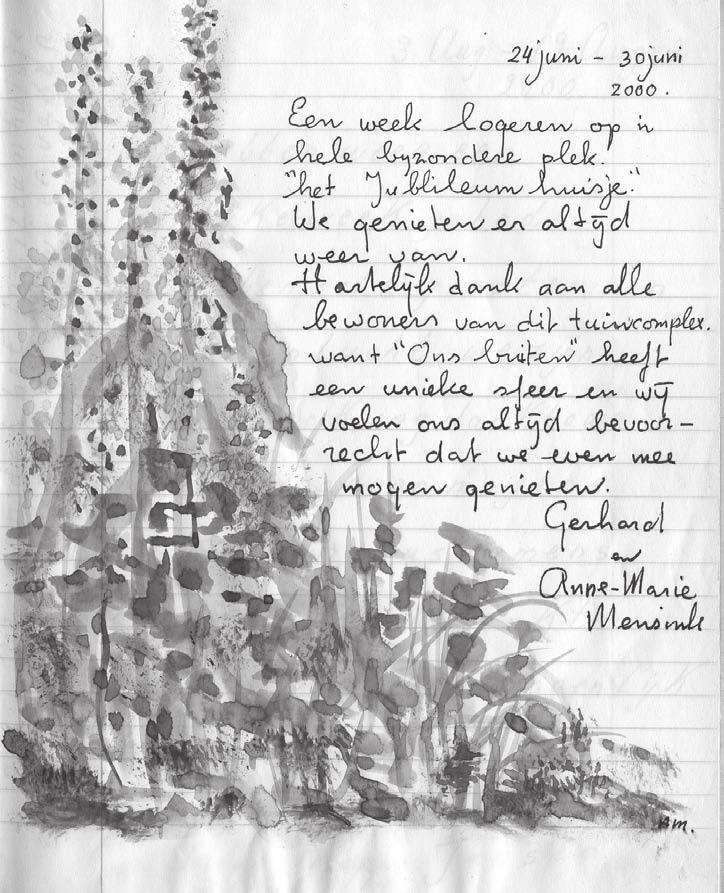 24 juni - 30 juni
2000.
Een week logeren op 'n
hele byzondere plek.
"het Jublileum huisje."
We genieten er altijd
weer van.
Hartelijk dank aan alle
bewoners van dit tuincomplex.
want "Ons buiten" heeft
een unieke sfeer en wij
voelen ons altijd bevoor-
recht dat we even mee
mogen genieten.
Gerhard
en
Anne-Marie
Mensink
AM.